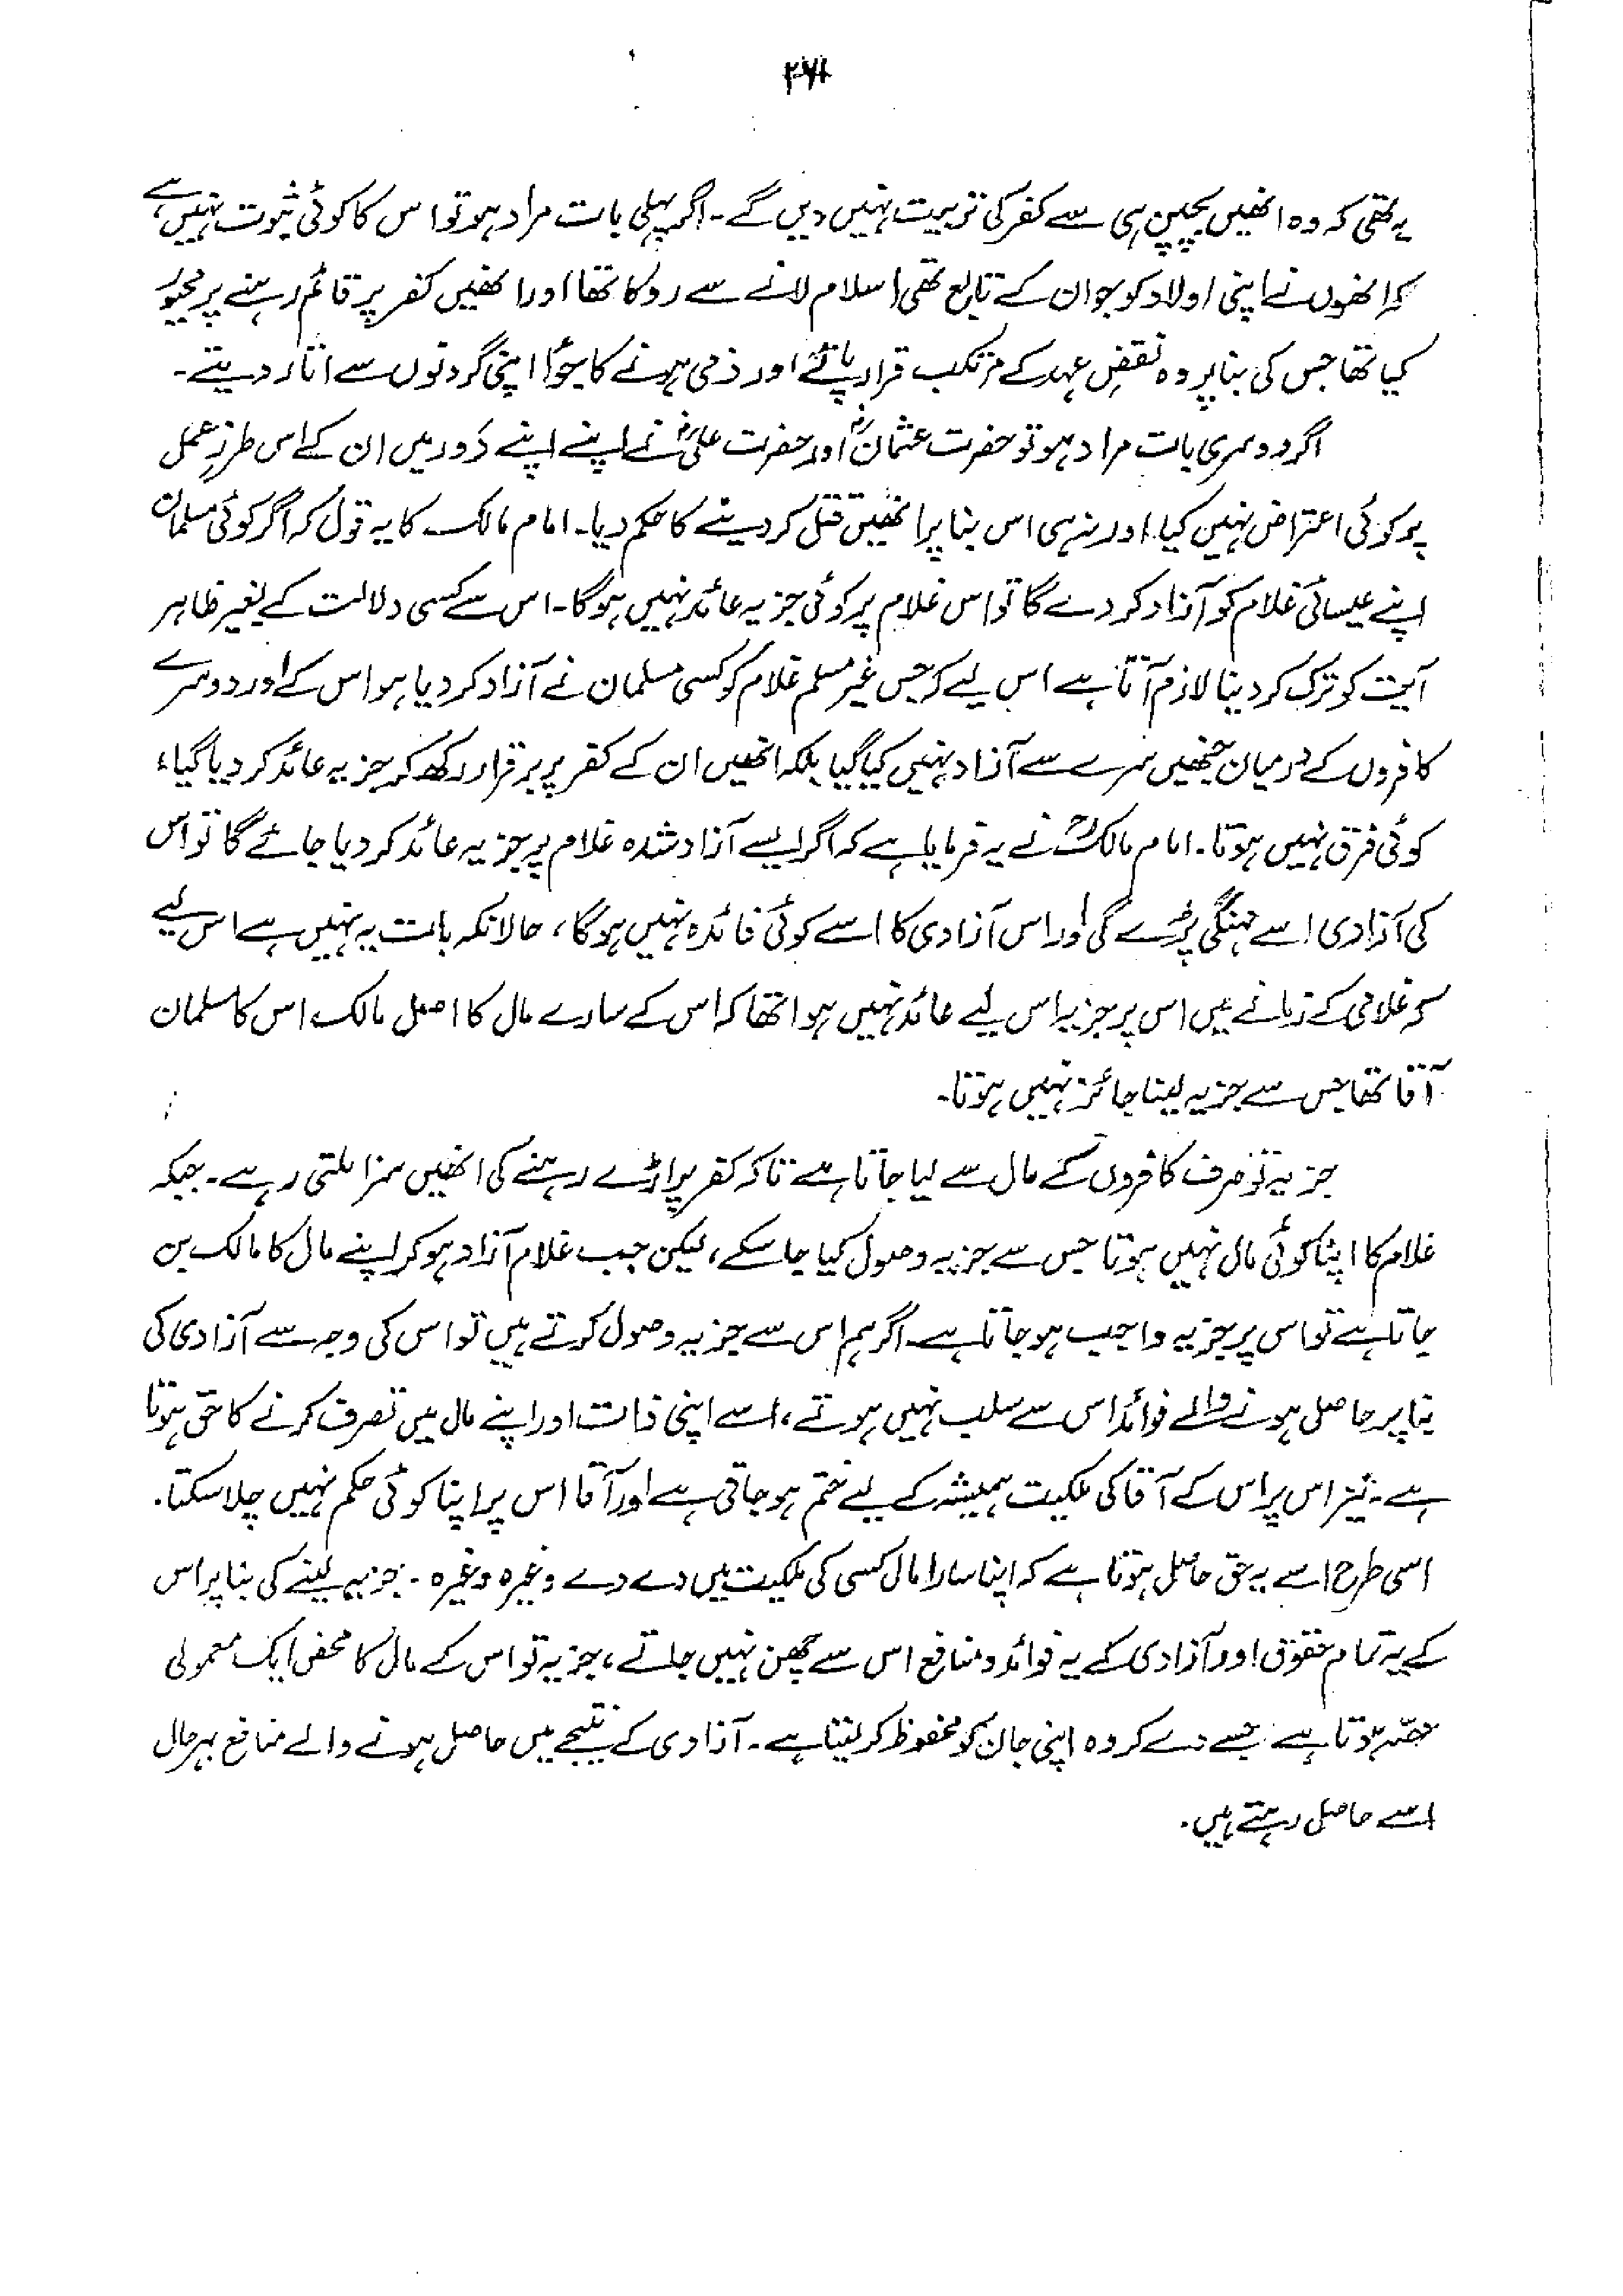 یہ تھی کہ وہ انھیں بچپن ہی سے کفر کی تربیت نہیں دیں گے۔ اگر پہلی بات مراد ہو تو اس کا کوئی ثبوت نہیں ہے
کہ انھوں نے اپنی اولاد کو جو ان کے تابع تھی اسلام لانے سے روکا تھا اور انھیں کفر پر قائم رہنے پر مجبور
کیا تھا جس کی بنا پر وہ نقضِ عہد کے مرتکب قرار پاتے اور ذمی ہونے کا جوُا اپنی گردنوں سے اتار دیتے۔
اگر دوسری بات مراد ہو تو حضرت عثمانؓ اور حضرت علیؓ نے اپنے اپنے دَور میں ان کے اس طرزِ عمل
پر کوئی اعتراض نہیں کیا اور نہ ہی اس بنا پر انھیں قتل کر دینے کا حکم دیا۔ امام مالک کا یہ قول کہ اگر کوئی مسلمان
اپنے عیسائی غلام کو آزاد کر دے گا تو اس غلام پر کوئی جزیہ عائد نہیں ہوگا۔ اس سے کسی دلالت کے بغیر ظاہر
آیت کو ترک کر دینا لازم آتا ہے اس لیے کہ جس غیر مسلم غلام کو کسی مسلمان نے آزاد کر دیا ہو اس کے اور دوسرے
کافروں کے درمیان جنھیں سرے سے آزاد نہیں کیا گیا بلکہ انھیں ان کے کفر پر برقرار رکھ کر جزیہ عائد کر دیا گیا،
کوئی فرق نہیں ہوتا۔ امام مالکؒ نے یہ فرمایا ہے کہ اگر ایسے آزاد شدہ غلام پر جزیہ عائد کر دیا جائے گا تو اس
کی آزادی اسے مہنگی پڑے گی اور اس آزادی کا اسے کوئی فائدہ نہیں ہوگا، حالانکہ بات یہ نہیں ہے اس لیے
کہ غلامی کے زمانے میں اس پر جزیہ اس لیے عائد نہیں ہوا تھا کہ اس کے سارے مال کا اصل مالک اس کا مسلمان
آقا تھا جس سے جزیہ لینا جائز نہیں ہوتا۔
جزیہ تو صرف کافروں کے مال سے لیا جاتا ہے تاکہ کفر پر اڑے رہنے کی انھیں سزا ملتی رہے۔ جبکہ
غلام کا اپنا کوئی مال نہیں ہوتا جس سے جزیہ وصول کیا جا سکے، لیکن جب غلام آزاد ہو کر اپنے مال کا مالک بن
جاتا ہے تو اس پر جزیہ واجب ہو جاتا ہے۔ اگر ہم اس سے جزیہ وصول کرتے ہیں تو اس کی وجہ سے آزادی کی
بنا پر حاصل ہونے والے فوائد اس سے سلب نہیں ہوتے، اسے اپنی ذات اور اپنے مال میں تصرف کرنے کا حق ہوتا
ہے۔ نیز اس پر اس کے آقا کی ملکیت ہمیشہ کے لیے ختم ہو جاتی ہے اور آقا اس پر اپنا کوئی حکم نہیں چلا سکتا۔
اسی طرح اسے یہ حق حاصل ہوتا ہے کہ اپنا سارا مال کسی کی ملکیت میں دے دے وغیرہ وغیرہ۔ جزیہ لینے کی بنا پر اس
کے یہ تمام حقوق اور آزادی کے یہ فوائد و منافع اس سے چھن نہیں جاتے، جزیہ تو اس کے مال کا محض ایک معمولی
حصّہ ہوتا ہے جسے دے کر وہ اپنی جان کو محفوظ کر لیتا ہے۔ آزادی کے نتیجے میں حاصل ہونے والے منافع بہرحال
اسے حاصل رہتے ہیں۔